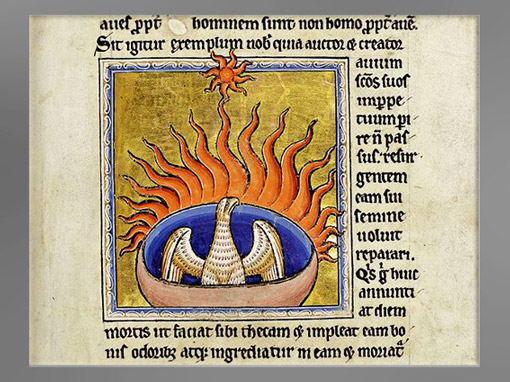 aues ꝓpt̄ hominem sunt non homo ꝓpt̄ aūē.
Sit igitur exemplum nob̄ quia auctor ⁊ creator
auium
sc̄os suos
inppe
tuum pi
re n̄ pas
sus. resur
gentem
eam sui
semine
uoluit
reparari.
annunti
at diem
mortis ut faciat sibi thecam ⁊ impleat eam bo
nis odoribꝫ atqꝫ ingrediatur in eam ⁊ moriat᷑